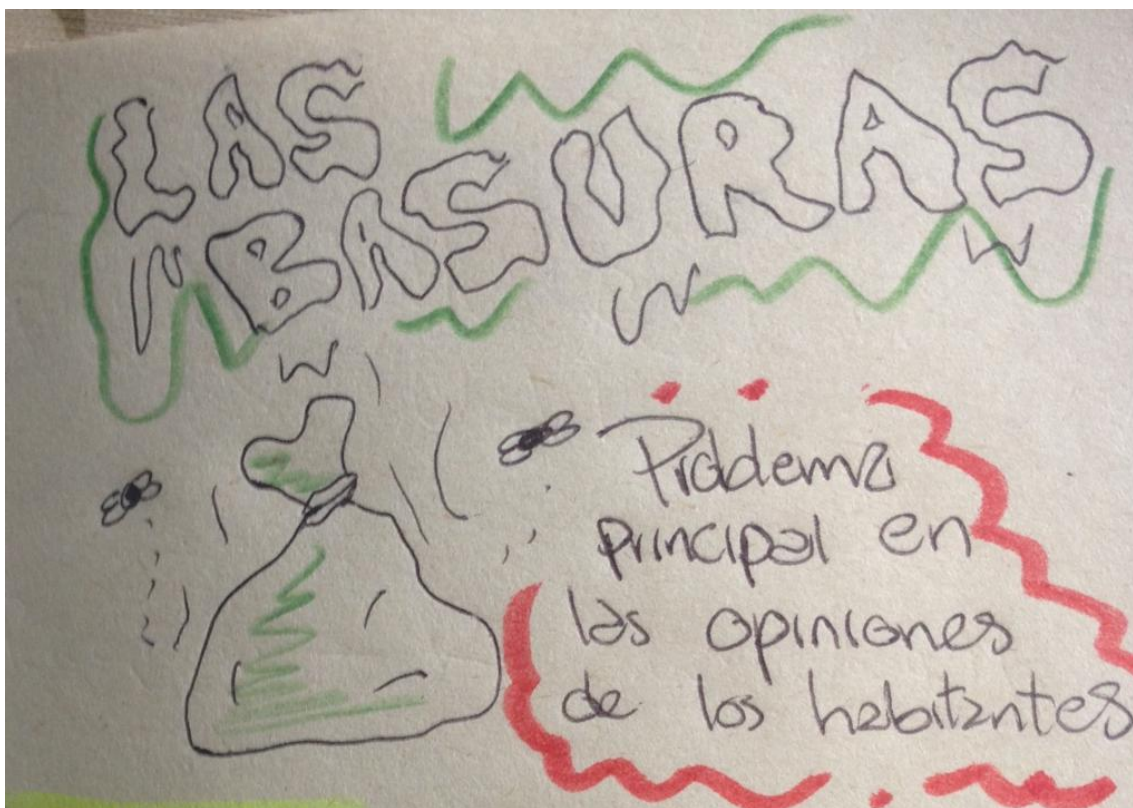 LAS
BASURAS
Problema
principal en
las opiniones
de los habitantes